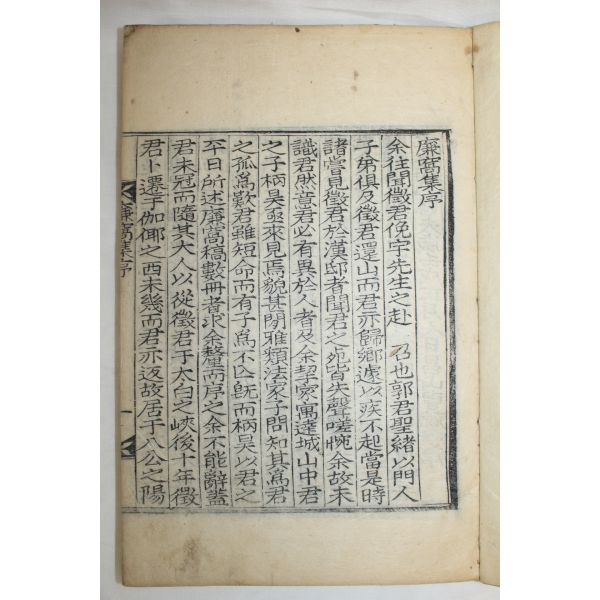 廉窩集序
余往聞徵君俛宇先生之赴 召也郭君聖緖以門人
子弟俱及徵君還山而君亦歸鄉遽以疾不起當是時
諸嘗見徵君於漢邸者聞君之死皆失聲嗟惋余故未
識君然意君必有異於人者及余挈家寓達城山中君
之子柄昊亟來見焉貌甚閒雅類法家子問知其爲君
之孤爲歎君雖短命而有子爲不亾旣而柄昊以君之
平日所述廉窩稿數冊者求余釐而序之余不能辭蓋
君未冠而隨其大人以從徵君于太白之峽後十年徵
君卜遷于伽倻之西未幾而君亦返故居于八公之陽
廉窩集序
一